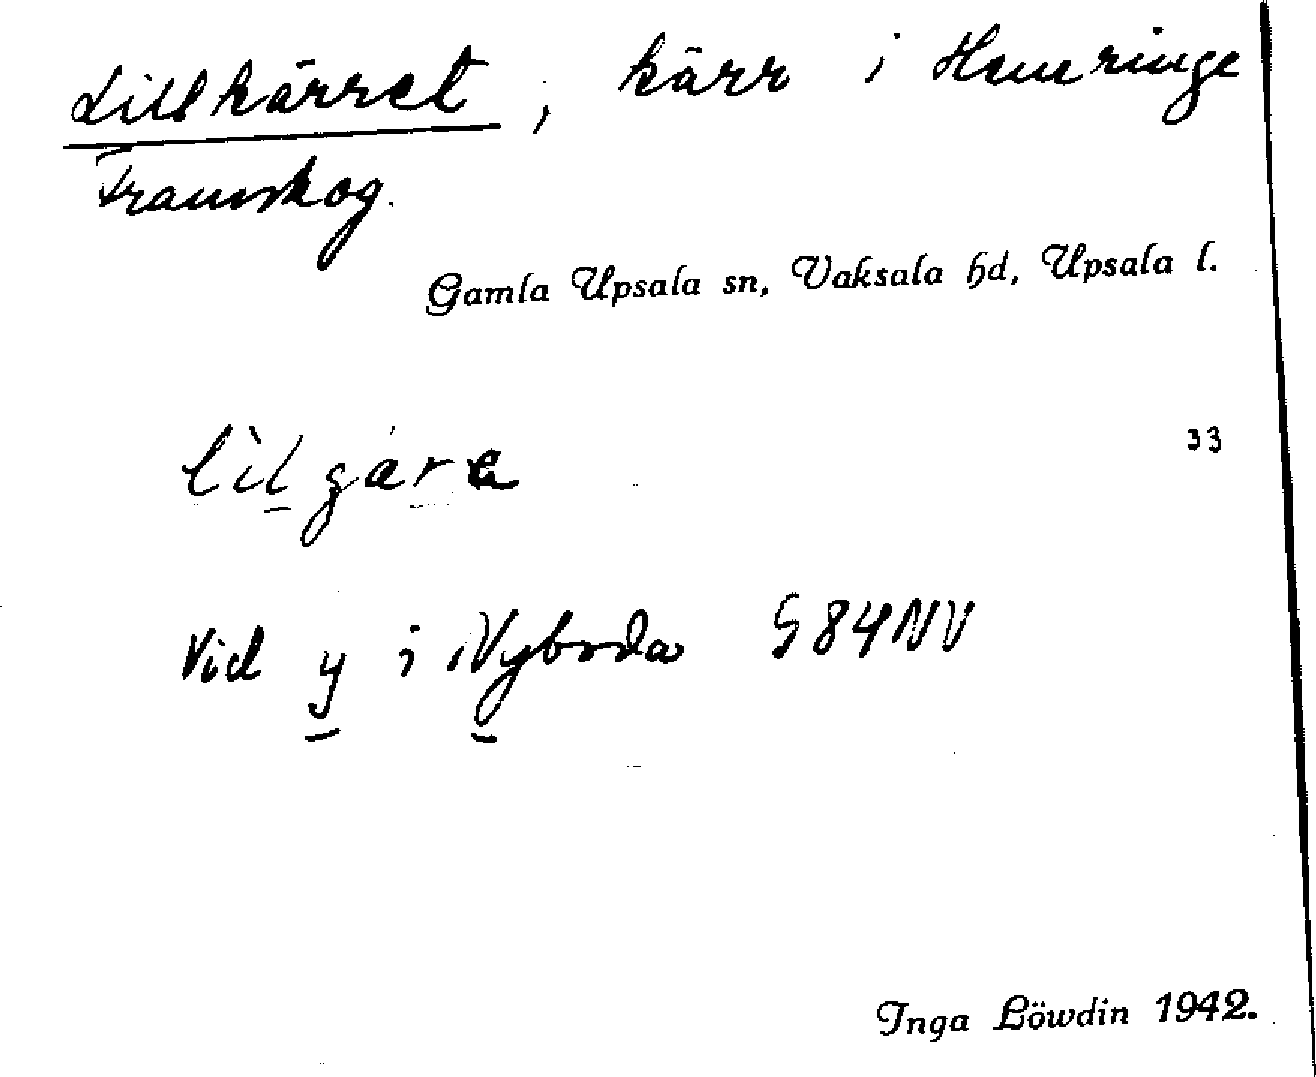 Lillkärret, kärr i Hemringe
Framskog.
Gamla Upsala sn, Vaksala hd, Upsala l.
33
Vid y i Nybroda S84NV
Inga Löwdin 1942.